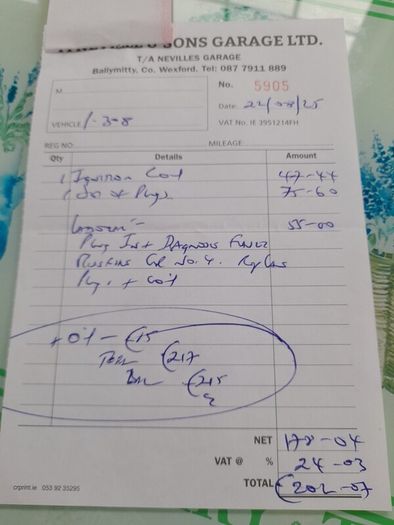 & SONS GARAGE LTD.
T/A NEVILLES GARAGE
Ballymitty, Co. Wexford. Tel: 087 7911 889
M
No. 5905
Date: 22/08/25
VEHICLE P-308
VAT No. IE 3951214FH
REG NO: MILEAGE
Qty Details Amount
1 Ignition Coil 47-44
1 Set of Plugs 75-60
Labour:- 55-00
Plug In + Diagnosis Engine
No. 4. Replace
Plugs + Coil
+ Oil - €15
Total €217
€215
NET 178-04
VAT @ % 24-03
TOTAL €202-07
crprint.ie 053 92 35295